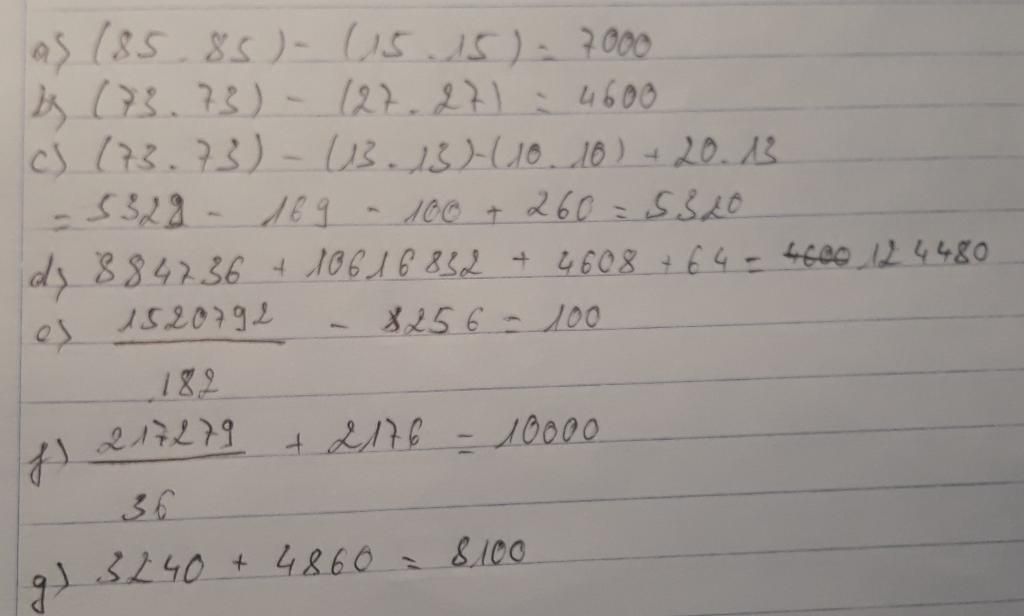 a) (85.85) - (15.15) = 7000
b) (73.73) - (27.27) = 4600
c) (73.73) - (13.13)-(10.10) + 20.13
= 5329 - 169 - 100 + 260 = 5320
d) 884736 + 10616832 + 4608 + 64 = 4600 124480
e) 1520792 - 8256 = 100
182
f) 217279 + 2176 = 10000
36
g) 3240 + 4860 = 8100